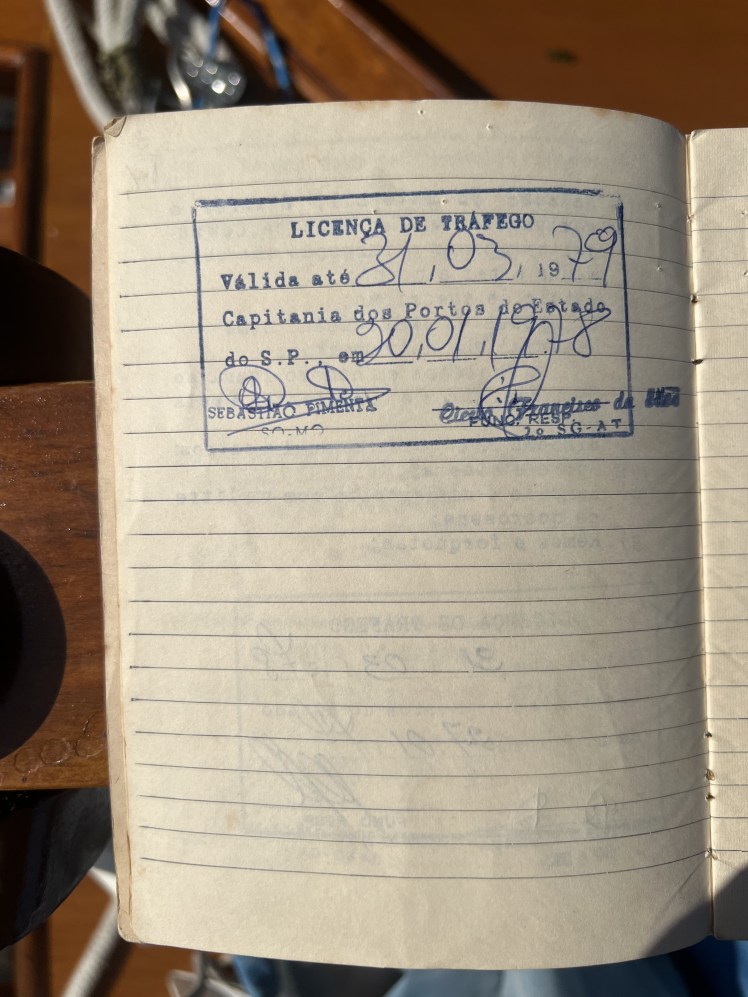 LICENÇA DE TRÁFEGO
Válida até 31, 03, 1979
Capitania dos Portos do Estado
do S.P., em 20, 01, 1978
SEBASTIÃO PIMENTA
Francisco da
SO-MO
FUNC. RESP
1º SG-AT